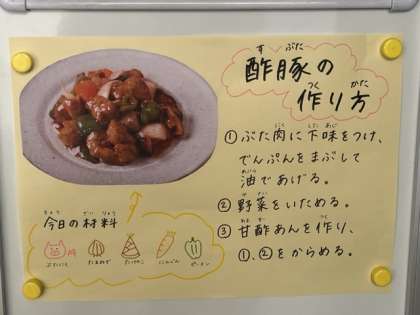 酢豚の
作り方
①ぶた肉に下味をつけ、
でんぷんをまぶして
油であげる。
②野菜をいためる。
③甘酢あんを作り、
①、②をからめる。
今日の材料
ぶたにく
たまねぎ
たけのこ
にんじん
ピーマン